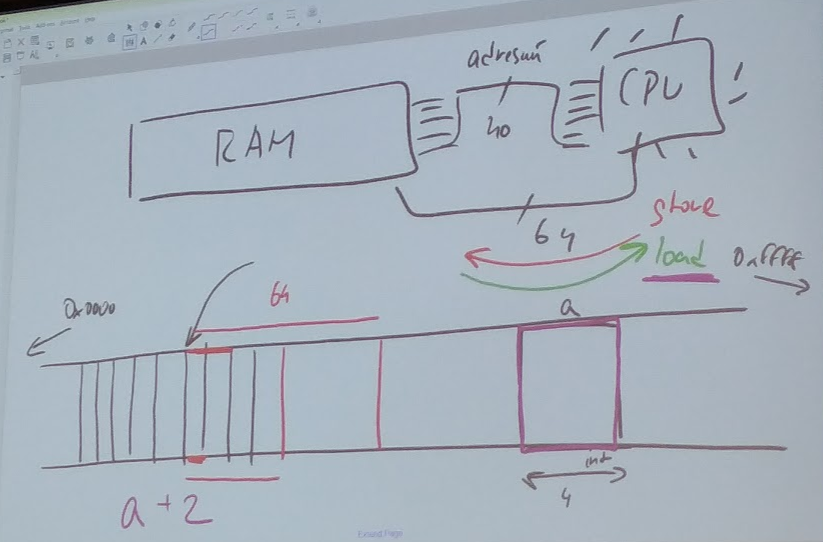 adresní
RAM
40
CPU
64
store
load
0xFFFF
0x0000
64
a
int
4
a + 2
Extend Page